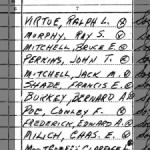 VIRTUE, RALPH L.
MURPHY, ROY S.
MITCHELL, BRUCE E.
PERKINS, JOHN T.
MITCHELL, JACK M.
SHADE, FRANCIS E.
BURKEY, BERNARD A.
POE, CONLEY F.
FREDERICK, EDWARD A.
MILICH, CHAS. E.
CLARENCE